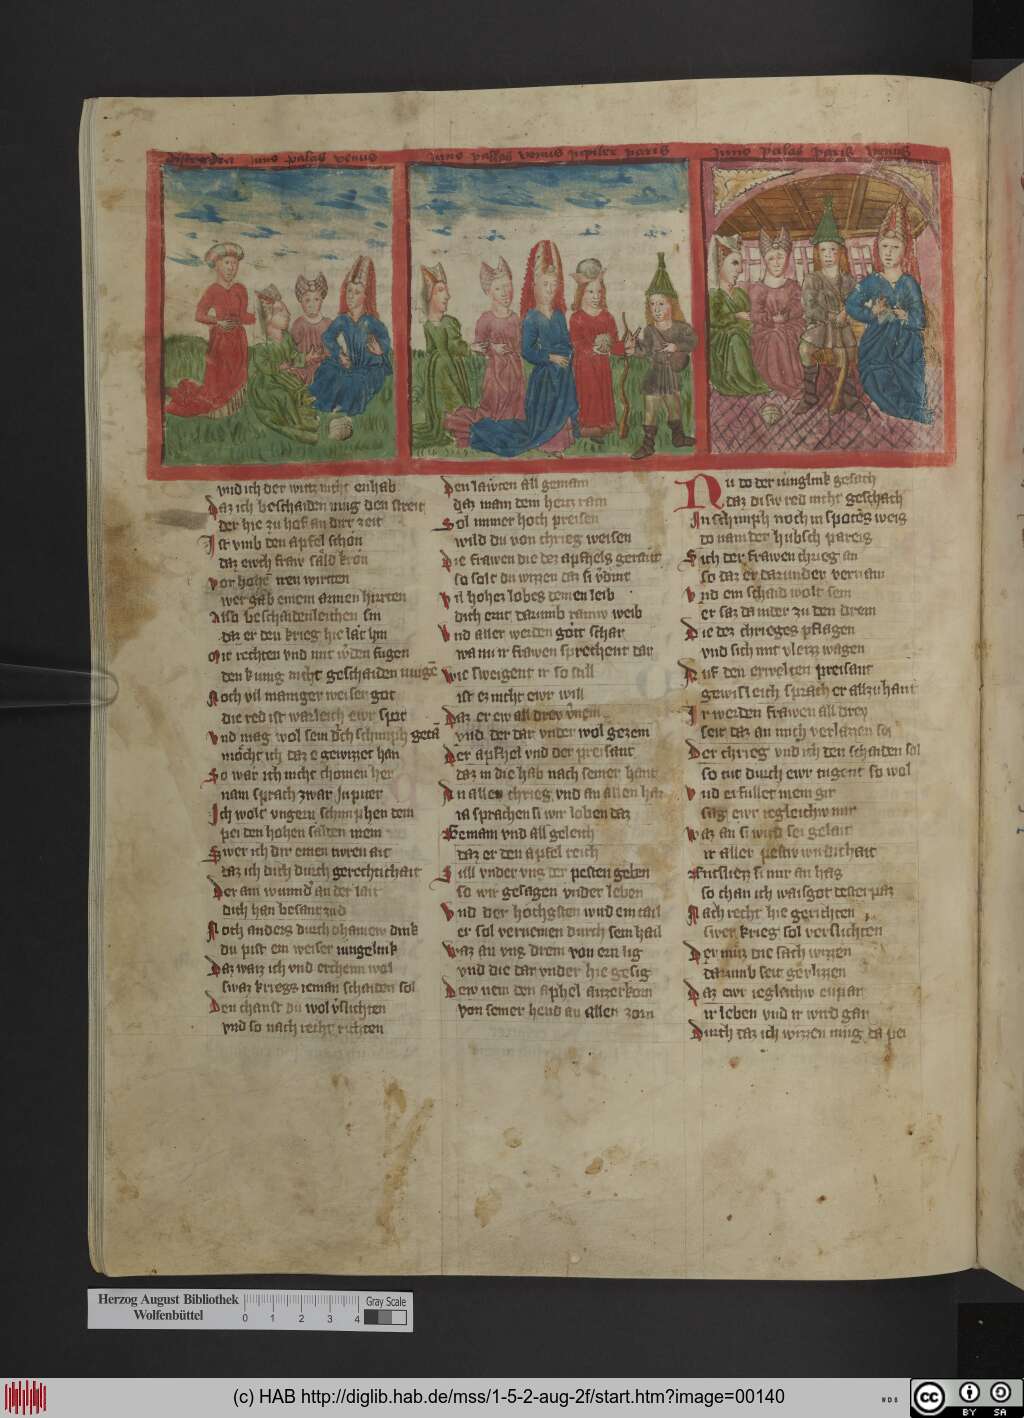 discordia juno palas venus
juno pallas venus jupiter paris
juno palas paris venus
vnd ich der witz nicht enhab
Daz ich beschaiden mug den streit
der hie zu hof an dirr zeit
Ist vmb den apfel schon
daz ewch fraw sald kron
vor hohē
wer gab einem armen hirten
Also beschaidenleichen sin
daz er den krieg hie lat hin
Mit rechten vnd mit fugen
den kunig nicht geschaiden mugē
Noch vil maniger weiser got
die red ist warleich ewr spot
vnd mag wol sein durch schimph getā
mocht ich daz e gewizzet han
So war ich nicht chomen her
nain sprach zwar Jupiter
Ich wolt vngern schimphen dem
pei den hohen sälden mein
Swer ich dir einen twren ait
daz ich dich durch gerechtichait
Der am wunnd an der lait
dich han besant
Noch anders durch dhainew dink
du pist ein weiser iungelink
Daz waiz ich vnd erchenn wol
swaz kriegs ieman schaiden sol
Den chanst du wol vslichten
vnd so nach recht richten
Den lawten all gemain
daz man dem herz rain
Sol immer hoch preisen
wild du von chrieg weisen
Die frawen die dez apfhels geraut
so solt du wizzen daz si
Vil hohez lobes deinen leib
dich ernt darumb rainw weib
Vnd aller werden gott schar
wann ir frawen sprechent dar
Wie sweigent ir so still
ist ez nicht ewr will
Daz er ew all drey
vnd der dar vnder wol gezem
Der apfhel vnd der preisant
daz in die hab nach seiner hant
An allen chrieg vnd an allen haz
ia sprachen si wir loben daz
Gemain vnd all geleich
daz er den apfel reich
Sull vnder vns der pesten geben
so wir gesagen vnder leben
Vnd der hochsten wird ein tail
er sol vernemen durch sein hail
Waz an vns drein von ern lig
vnd die dar vnder hie gesig
Dew nem den aphel auzerkorn
von seiner hend an allen zorn
Nu do der iunglink gesach
daz disw red nicht geschach
In schimph noch in spotes weis
do nam der hubsch pareis
Sich der frawen chrieg an
so daz er darunder vernam
Vnd ein schaid wolt sein
er saz da nider zu den drein
Die dez chrieges pflagen
vnd sich mit vleizz wagen
Auf den erwelten preisant
gewisleich sprach er allzuhant
Ir werden frawen all drey
seit daz an mich verlazen sei
Der chrieg vnd ich den schaiden sol
so tut durch ewr tugent so wol
Vnd erfullet mein gir
sag ewr iegleichw mir
Waz an si wird sei gelait
ir aller pestw wirdichait
Entsliezz si mir an has
so chan ich waisgot dester paz
Nach recht hie gerichten
swer krieg sol verslichten
Der muz die sach wizzen
darumb seit geflizzen
Daz ewr iegleichw enpar
ir leben vnd ir wird gar
Durch daz ich wizzen mug da pei
Herzog August Bibliothek
Wolfenbüttel
0 1 2 3 4
Gray Scale
(c) HAB http://diglib.hab.de/mss/1-5-2-aug-2f/start.htm?image=00140
WDB
cc BY SA